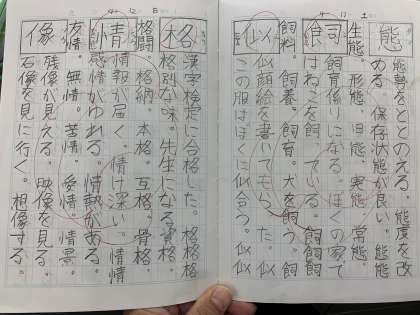 態
態勢をととのえる。態度を改
める。保存状態が良い。態態
生態。形態。旧態。実態。常
飼
飼育係りになる。ぼくの家で
はねこを飼っている。飼飼飼
飼料。飼養。飼育。犬を飼う。飼
似
似顔絵を書いてもらった。似
この服はぼくに似合う。似
格
漢字検定に合格した。格格格
格別な味。先生になる資格
格闘。格納。本格。互格。骨格
情
情報が届く。情け深い。情情
感情がゆれる。情熱がある。
友情。無情。苦情。愛情。情景
像
残像が見える。映像を見る。
石像を見に行く。想像する。